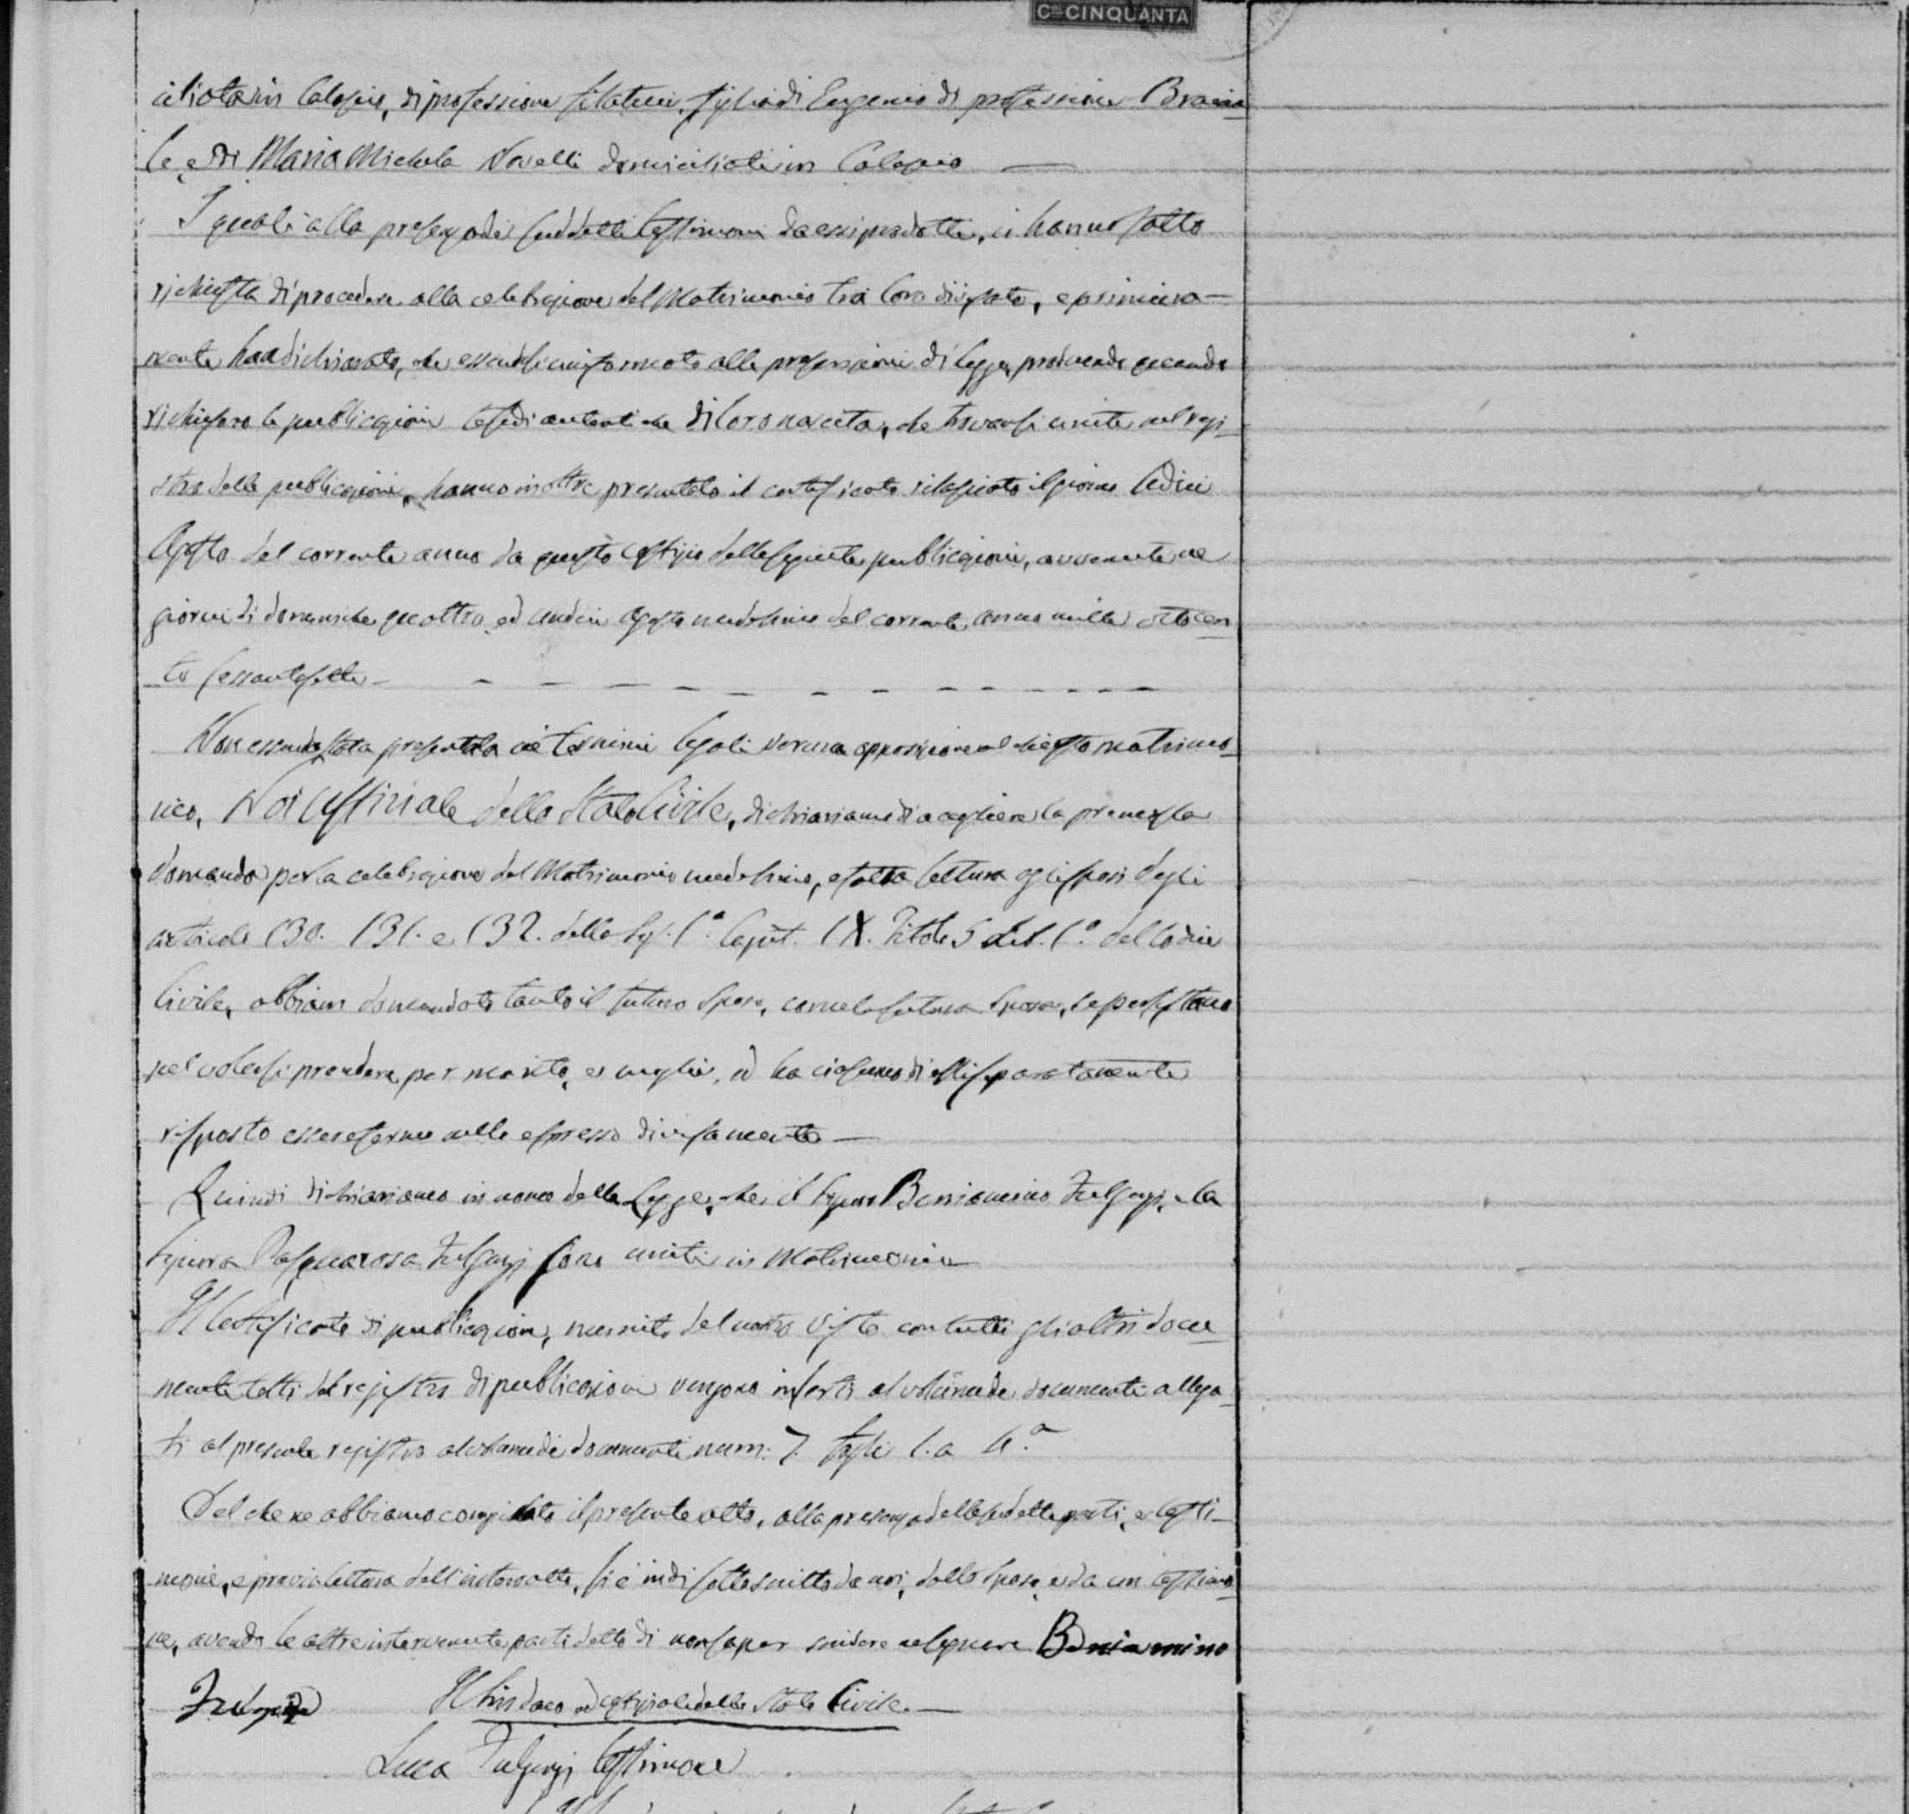 Cmi CINQUANTA
ciliata in Calascio, di professione filatrice, figlia di Eugenio di professione Braccia-
le, e di Maria Michela Novelli domiciliati in Calascio —
I quali alla presenza dei suddetti testimoni da essi prodotti, ci hanno fatto
richiesta di procedere alla celebrazione del Matrimonio tra loro divisato, e primiera-
mente han dichiarato, che essendosi uniformato alle prescrizioni di legge, producendo quando
richiesero le pubblicazioni le fedi autentiche di loro nascita, che trovansi unite nel regi-
stro delle pubblicazioni, hanno inoltre presentato il certificato rilasciato il giorno sedici
Agosto del corrente anno da questo Uffizio delle seguite pubblicazioni, avvenute ne
giorni di domeniche quattro, ed undici Agosto medesimo del corrente anno mille ottocen-
to sessantasette —
Non essendo stata presentata ne' termini legali veruna opposizione al chiesto matrimo-
nio, Noi Uffiziale dello Stato Civile, dichiariamo di accogliere la premessa
domanda per la celebrazione del Matrimonio medesimo, e fatta lettura agli sposi degli
articoli 130. 131. e 132. della Sez. 1a. Capit. IX. Titolo 5 Lib. 1o. del Codice
Civile, abbiam domandato tanto il futuro sposo, come la futura sposa, se persistono
nel volersi prendere per marito, e moglie, ed ha ciascuno di essi separatamente
risposto essere fermo nello espresso divisamento —
Quindi dichiariamo in nome della Legge, che il signor Beniamino Fulgenzi, e la
signora Pasquarosa Fulgenzi sono uniti in Matrimonio
Il Certificato di pubblicazione, munito del nostro Visto con tutti gli altri docu-
menti tolti dal registro di pubblicazioni vengono inserti al volume de' documenti allega-
ti al presente registro al volume di documenti num: 7. fogli 1. a 4.a
Del che ne abbiamo compilato il presente atto, alla presenza delle sudette parti, e testi-
moni, e previa lettura dell'intero atto, si è indi sottoscritto da noi, dallo sposo, e da un testimo-
ne, avendo le altre intervenute parti detto di non saper scrivere ne segnare Beniamino
Fulgenzi Il Sindaco ed Uffiziale dello Stato Civile —
Luca Fulgenzi testimone